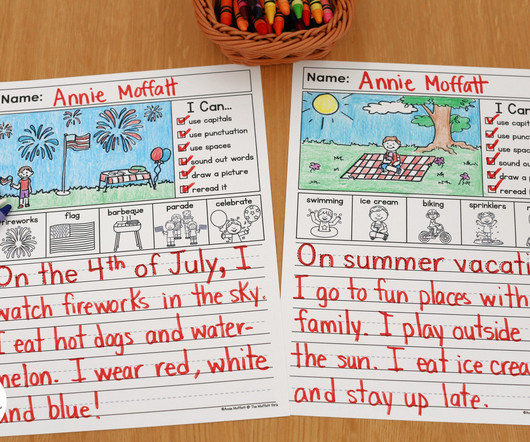 Name: Annie Moffatt
I Can...
use capitals
use punctuation
use spaces
sound out words
draw a picture
reread it
fireworks flag barbeque parade celebrate
On the 4th of July, I
watch fireworks in the sky.
I eat hot dogs and water-
melon. I wear red, white
and blue!
©Annie Moffatt @ The Moffatt Girls
Name: Annie Moffatt
I Can...
use capit
use punct
use spac
sound out
draw a pi
reread
swimming ice cream biking sprinklers
On summer vacati
I go to fun places with
family. I play outside
the sun. I eat ice crea
and stay up late.
©Annie Moffatt @ The